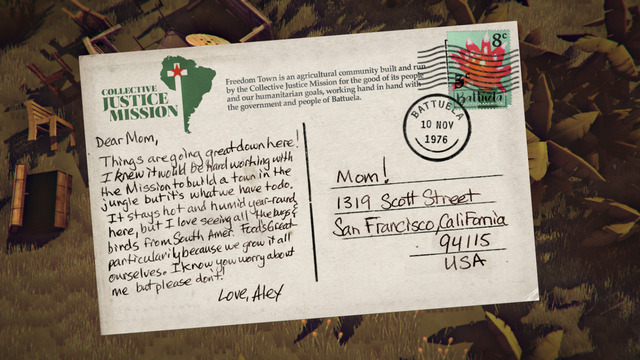 COLLECTIVE
JUSTICE
MISSION
Freedom Town is an agricultural community built and run
by the Collective Justice Mission for the good of its people
and our humanitarian goals, working hand in hand with
the government and people of Battuela.
8c
3c
Battuela
BATTUELA
10 NOV
1976
Dear Mom,
Things are going great down here!
I knew it would be hard working with
the Mission to build a town in the
jungle but it's what we have to do.
It stays hot and humid year-round
here, but I love seeing all the bugs &
birds from South Amer. Food's Great
particularly because we grow it all
ourselves. I know you worry about
me but please don't!
Love, Alex
Mom!
1319 Scott Street
San Francisco, California
94115
USA